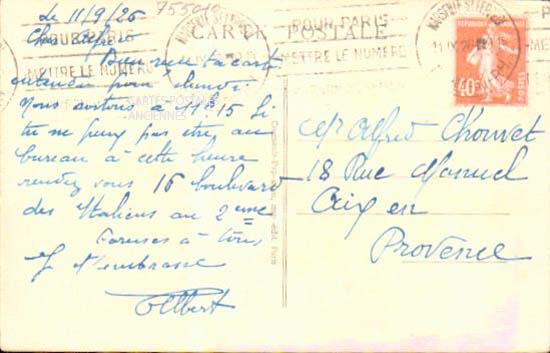 Le 11/9/26
755019
Cher Alfred
Bien reçu ta carte
entendu pour lundi.
Nous sortons à 11 15 Si
tu ne peux pas etre au
bureau à cette heure
rendez vous 16 boulevard
des Italiens au 2eme
Caresses à tous
Je t'embrasse
Albert
CARTE POSTALE
POUR PARIS
METTRE LE NUMERO
POUR PARIS
METTRE LE NUMERO
CARTES POSTALES
ANCIENNES
40c
POSTES
Mr Alfred Chouvet
18 Rue Manuel
Aix en
Provence